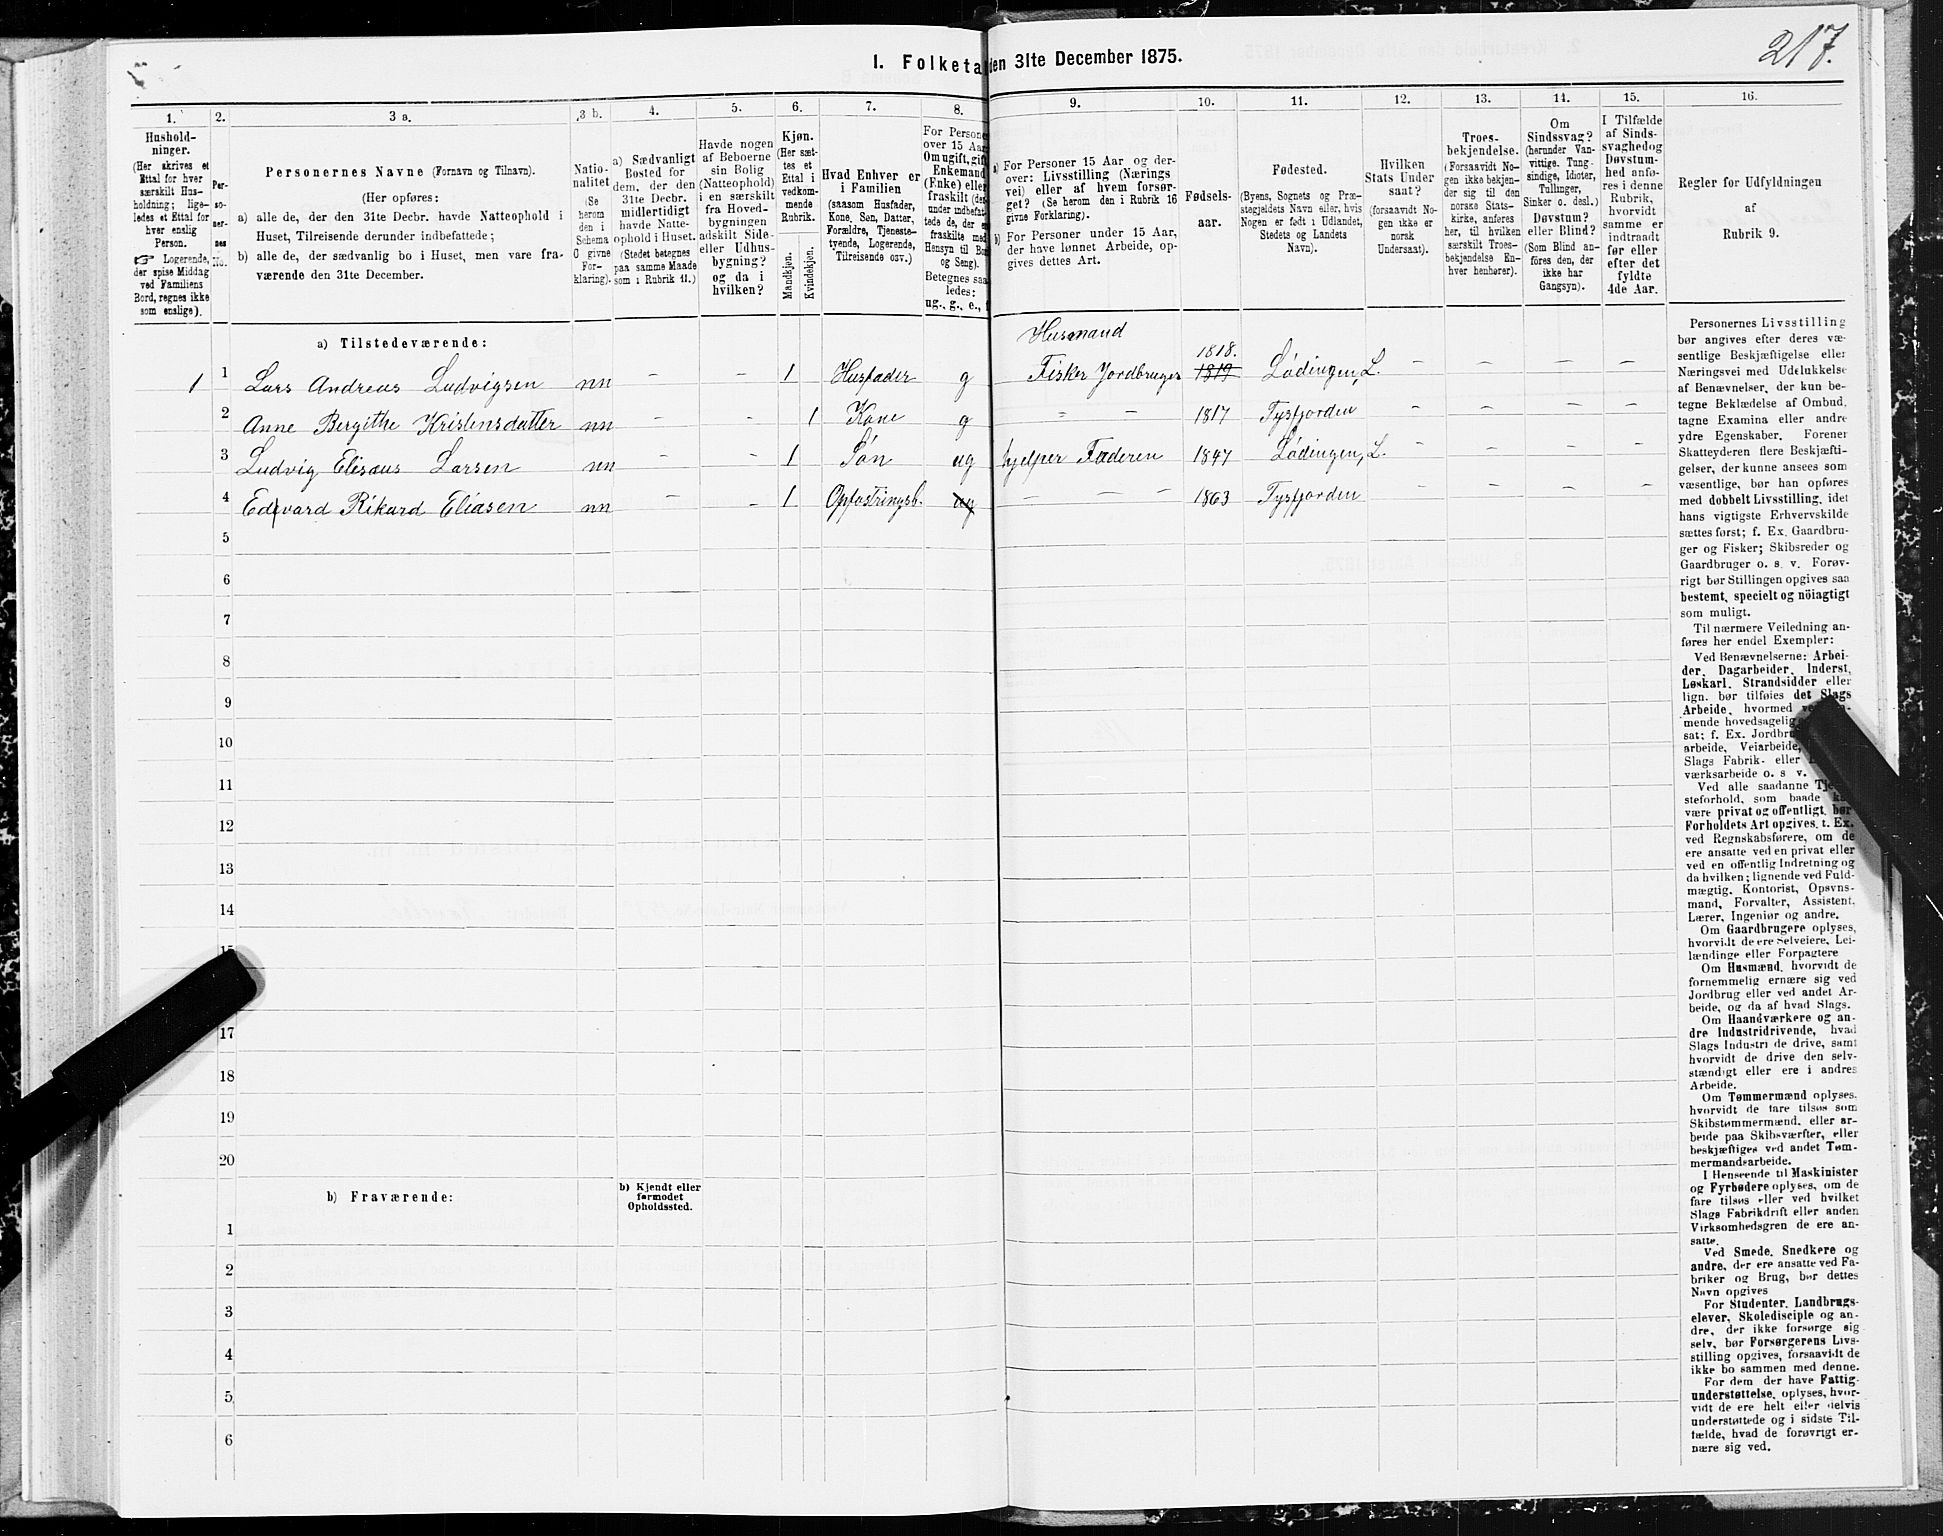 217.
1. Folketa den 31te December 1875.
1.
Hushold-
ninger.
(Her skrives et
Ettal for hver
særskilt Hus-
holdning; lige-
ledes et Ettal for
hver enslig
Person.
☞ Logerende,
der spise Middag
ved Familiens
Bord, regnes ikke
som enslige).
2.
3 a.
Personernes Navne (Fornavn og Tilnavn).
(Her opføres:
a) alle de, der den 31te Decbr. havde Natteophold i
Huset, Tilreisende derunder indbefattede;
b) alle de, der sædvanlig bo i Huset, men vare fra-
værende den 31te December.
3 b.
Natio-
nalitet
(Se
herom
den i
Schema
O givne
For-
klaring).
4.
a) Sædvanligt
Bosted for
dem, der den
31te Decbr.
midlertidigt
havde Natte-
ophold i Huset.
(Stedet betegnes
paa samme Maade
som i Rubrik 11.)
5.
Havde nogen
af Beboerne
sin Bolig
(Natteophold)
i en særskilt
fra Hoved-
bygningen
adskilt Side-
eller Udhus-
bygning?
og da i
hvilken?
6.
Kjøn.
(Her sæt-
tes et
Ettal i
vedkom-
mende
Rubrik.
Mandkjøn.
Kvindekjøn.
7.
Hvad Enhver er
i Familien
(saasom Husfader,
Kone, Søn, Datter,
Forældre, Tjeneste-
tyende, Logerende,
Tilreisende osv.)
8.
For Persone
over 15 Aar
Om ugift, gift
Enkemand
(Enke) eller
fraskilt (der-
under indbefat-
tede de, der er
fraskilte med
Hensyn til Bo
og Seng).
Betegnes saa-
ledes:
ug., g., e.,
9.
a) For Personer 15 Aar og der-
over: Livsstilling (Nærings
vei) eller af hvem forsør-
get? (Se herom den i Rubrik 16
givne Forklaring).
b) For Personer under 15 Aar,
der have lønnet Arbeide, op-
gives dettes Art.
10.
Fødsels-
aar.
11.
Fødested.
(Byens, Sognets og Præ-
stegjeldets Navn eller, hvis
Nogen er født i Udlandet,
Stedets og Landets
Navn).
12.
Hvilken
Stats Under
saat?
(forsaavidt No-
gen ikke er
norsk
Undersaat).
13.
Troes-
bekjendelse.
(Forsaavidt No-
gen ikke bekjen-
der sig til den
norske Stats-
kirke, anføres
her, til hvilken
særskilt Troes-
bekjendelse En-
hver henhører).
14.
Om
Sindssvag?
(herunder Van-
vittige, Tung-
sindige, Idioter,
Tullinger,
Sinker o. desl.)
Døvstum?
eller Blind?
(Som Blind an-
føres den, der
ikke har
Gangsyn).
15.
I Tilfælde
af Sinds-
svaghed og
Døvstum-
hed anfø-
res i denne
Rubrik,
hvorvidt
samme er
indtraadt
før eller
efter det
fyldte
4de Aar.
16.
Regler for Udfyldningen
af
Rubrik 9.
a) Tilstedeværende:
Husmand
1 1 Lars Andreas Ludvigsen nn - - 1 Husfader g Fisker Jordbruger 1818. 1819 Lødingen, L. - - - -
2 Anne Bergithe Kristensdatter nn - - 1 Kone g - - 1817 Tysfjorden - - - -
3 Ludvig Elisæus Larsen nn - - 1 Søn ug hjelper Faderen 1847 Lødingen, L. - - - -
4 Edvard Rikard Eliasen nn - - 1 Opfostringsb. ug - - - 1863 Tysfjorden - - - -
5
6
7
8
9
10
11
12
13
14
15
17
18
19
20
b) Fraværende:
b) Kjendt eller
formodet
Opholdssted.
1
2
3
4
5
6
Personernes Livsstilling
bør angives efter deres væ-
sentlige Beskjæftigelse eller
Næringsvei med Udelukkelse
af Benævnelser, der kun be-
tegne Beklædelse af Ombud,
tagne Examina eller andre
ydre Egenskaber. Forener
Skatteyderen flere Beskjæfti-
gelser, der kunne ansees som
væsentlige, bør han opføres
med dobbelt Livsstilling, idet
hans vigtigste Erhvervskilde
sættes først; f. Ex. Gaardbru-
ger og Fisker; Skibsreder og
Gaardbruger o. s. v. Forøv-
rigt bør Stillingen opgives saa
bestemt, specielt og nöiagtigt
som muligt.
Til nærmere Veiledning an-
føres her endel Exempler:
Ved Benævnelserne: Arbei-
der, Dagarbeider, Inderst,
Løskarl, Strandsidder eller
lign. bør tilføies det Slags
Arbeide, hvormed
mende hovedsagelig
sat; f. Ex. Jordbru
arbeide, Veiarbeide,
Slags Fabrik- eller
værksarbeide o. s v.
Ved alle saadanne Tje
steforhold, som baade
være privat og offentligt, bør
Forholdets Art opgives, t. Ex.
ved Regnskabsførere, om de
ere ansatte ved en privat eller
ved en offentlig Indretning og
da hvilken; lignende ved Fuld-
mægtig, Kontorist, Opsvns-
mand, Forvalter, Assistent,
Lærer, Ingeniør og andre.
Om Gaardbrugere oplyses,
hvorvidt de ere Selveiere, Lei-
lændinge eller Forpagtere
Om Husmænd, hvorvidt de
fornemmelig ernære sig ved
Jordbrug eller ved andet Ar-
beide, og da af hvad Slags.
Om Haandværkere og an-
dre Industridrivende, hvad
Slags Industri de drive, samt
hvorvidt de drive den selv-
stændigt eller ere i andres
Arbeide.
Om Tømmermænd oplyses,
hvorvidt de fare tilsøs som
Skibstømmermænd, eller ar-
beide paa Skibsværfter, eller
beskjæftiges ved andet Tøm-
mermandsarbeide.
I Henseende til Maskinister
og Fyrbødere oplyses, om de
fare tilsøs eller ved hvilket
Slags Fabrikdrift eller anden
Virksomhedsgren de ere an-
satte.
Ved Smede, Snedkere og
andre, der ere ansatte ved Fa-
briker og Brug, bør dettes
Navn opgives
For Studenter, Landbrugs-
elever, Skoledisciple og an-
dre, der ikke forsørge sig
selv, bør Forsørgerens Livs-
stilling opgives, forsaavidt de
ikke bo sammen med denne.
For dem der have Fattig-
understøttelse, oplyses, hvor-
vidt de ere helt eller delvis
understøttede og i sidste Til-
fælde, hvad de forøvrigt er-
nære sig ved.